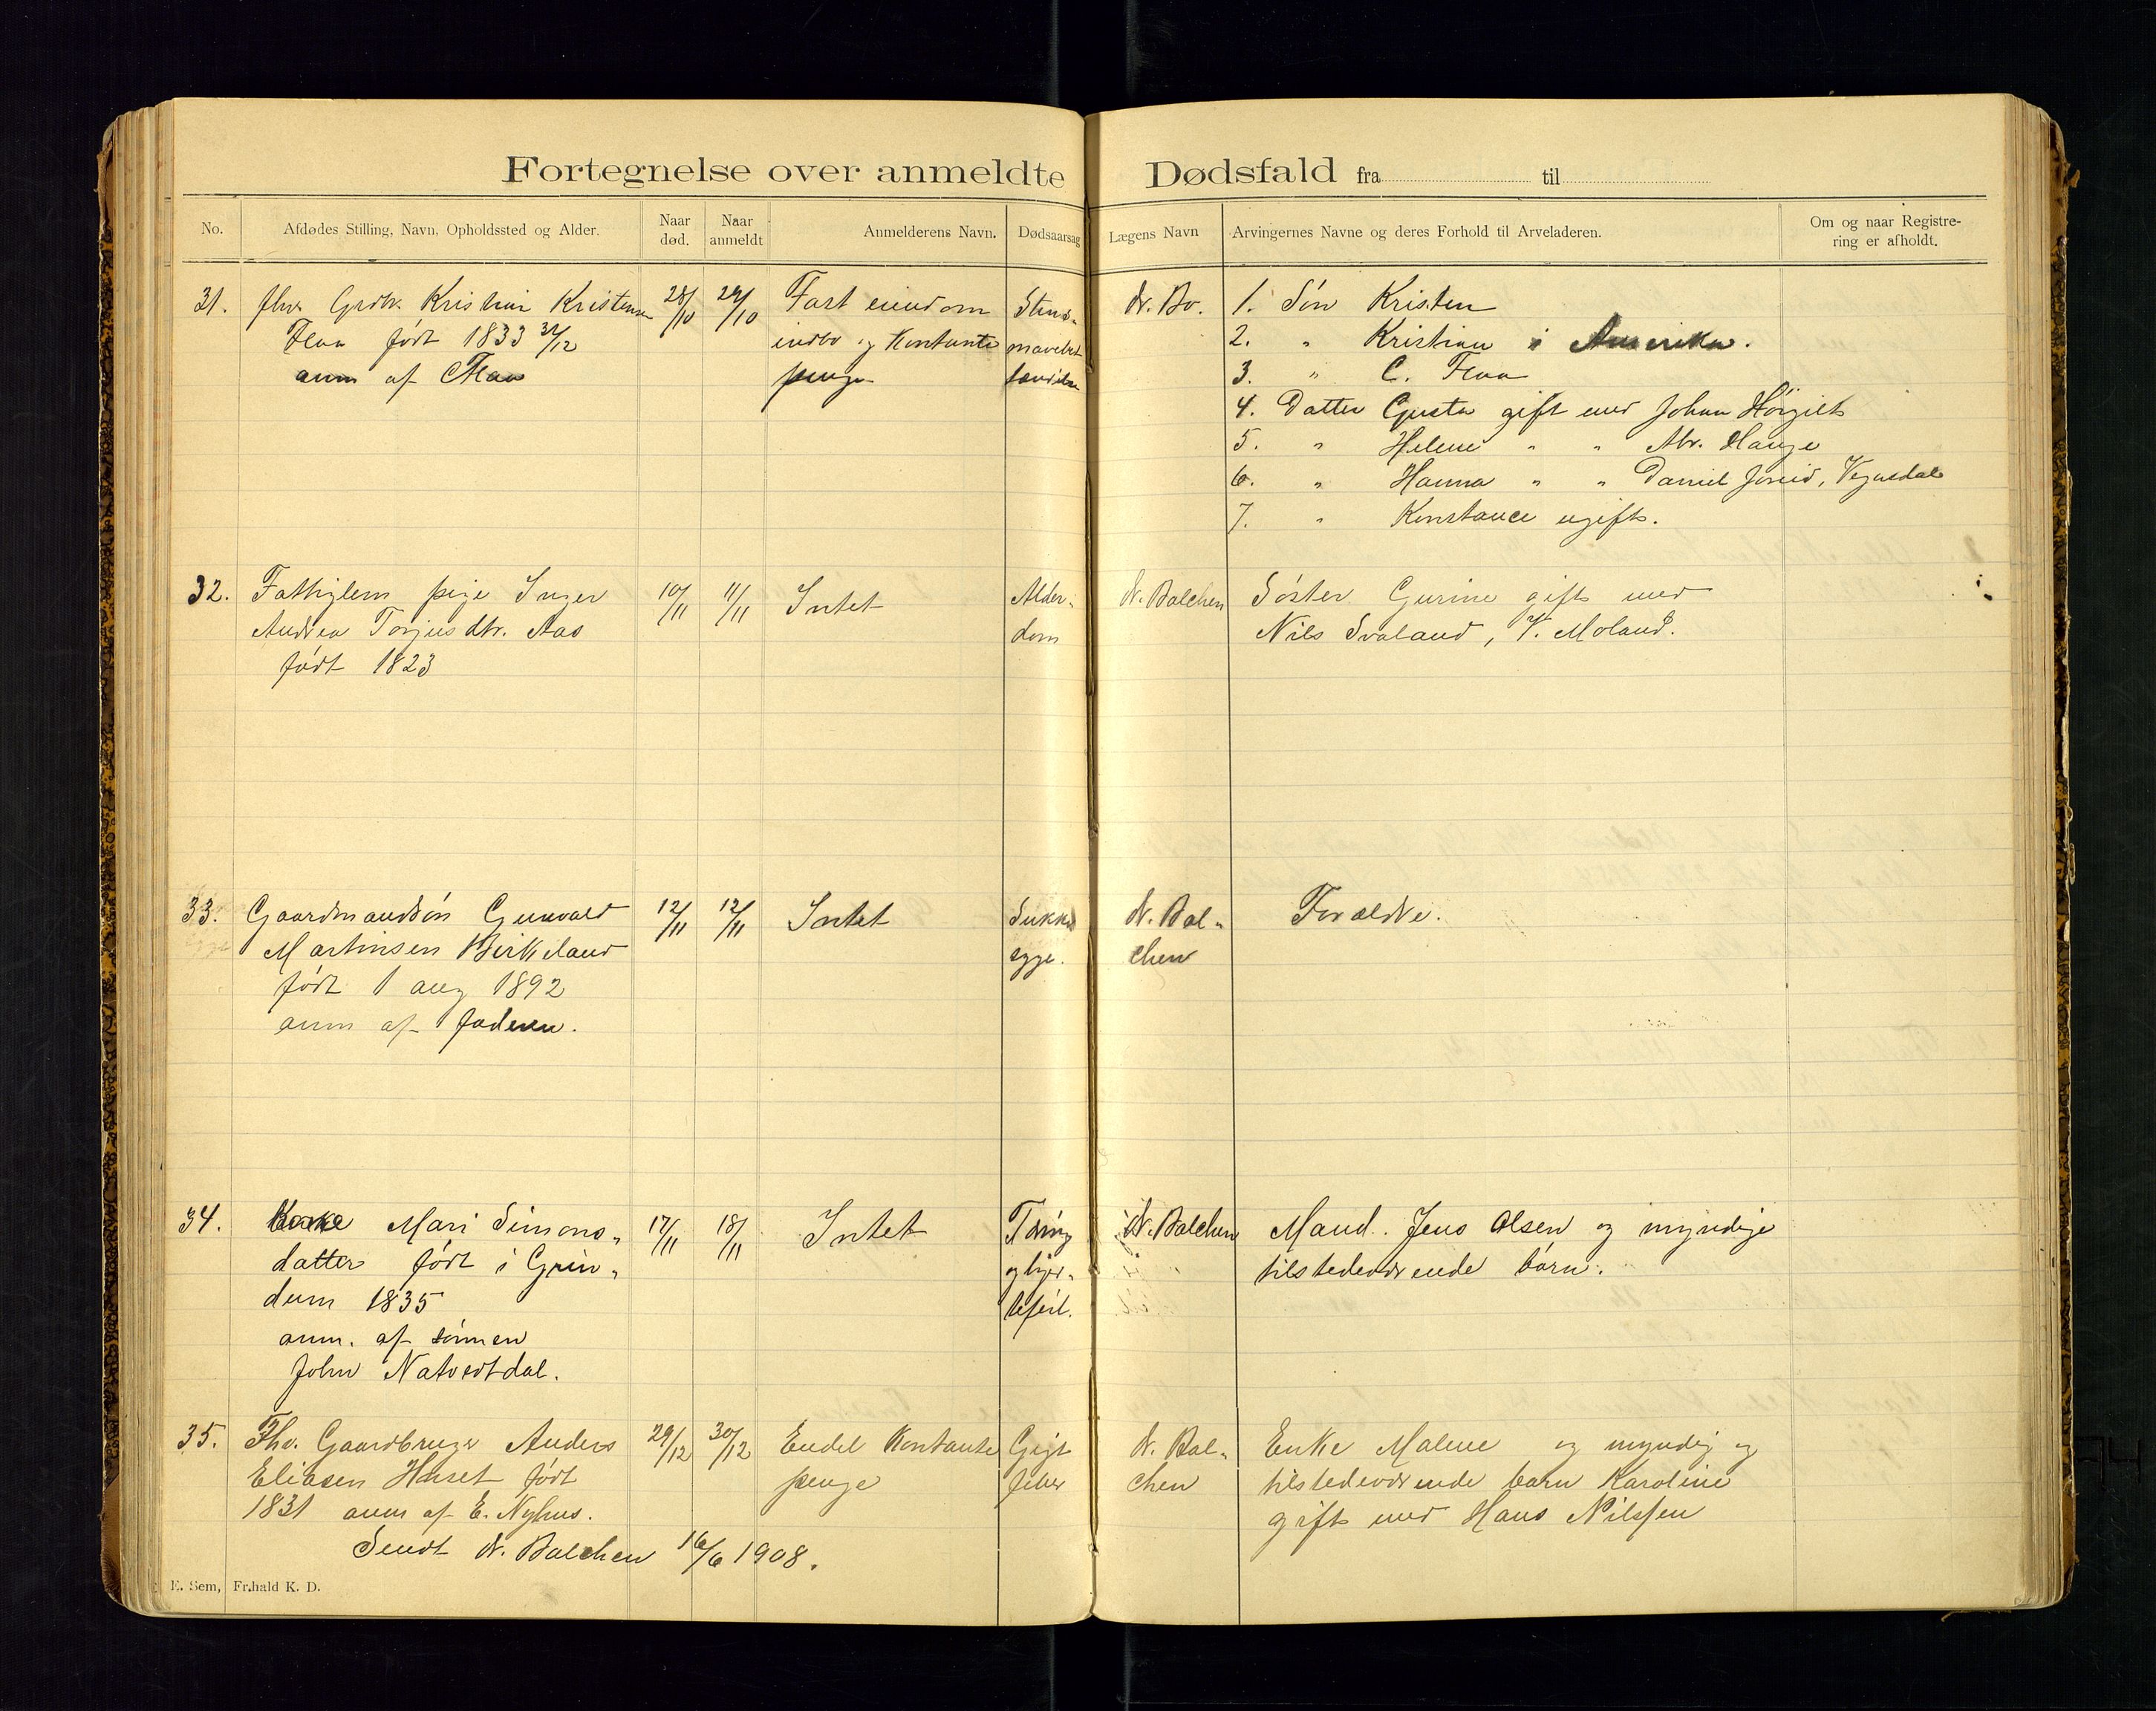 Fortegnelse over anmeldte Dødsfald fra til
No. Afdødes Stilling, Navn, Opholdssted og Alder. Naar død. Naar anmeldt Anmelderens Navn. Dødsaarsag Lægens Navn Arvingernes Navne og deres Forhold til Arveladeren. Om og naar Registrering er afholdt.
31. fhv. Grdbr. Kristian Kristensen 28/10 29/10 Fast eiendom dr. Bo. 1. Søn Kristen
Flaa født 1833 31/12 indbo og Kontante 2. " Kristian i Amerika.
anm af C Flaa penge 3. " C. Flaa
4. Datter Gusta gift med Johan
5. " Helene " " Abr. Hauge
6. " Hanna " " Daniel Joreid, Vegusdal
7. " Konstance ugift.
32. Fattiglem pige Inger 10/11 11/11 Intet Alder- dr. Balchen Søster Gurine gift med
Andrea Torjusdtr. Aas dom Nils Svaland, V. Moland.
født 1823
33. Gaardmandsøn Gunvald 12/11 12/11 Intet Sukker dr. Bal- Forældre.
Martinsen Birkeland syge. chen
født 1 aug 1892
anm af faderen.
34. Kone Mari Simons- 17/11 18/11 Intet Tæring dr. Balchen Mand. Jens Olsen og myndige
datter født i Grin- og hjer- tilstedeværende børn.
dum 1835 tefeil.
anm. af sønnen
John Natvedtdal.
35. Fhv. Gaardbruger Anders 29/12 30/12 Endel Kontante Gigt dr. Bal- Enke Malene og myndig og
Eliasen Huset født penge feber chen tilstedeværende barn Karoline
1831 anm af E. Nyhus. gift med Hans Nilssen
Sendt dr. Balchen 16/6 1908.
E. Sem, Fr.hald K. D.